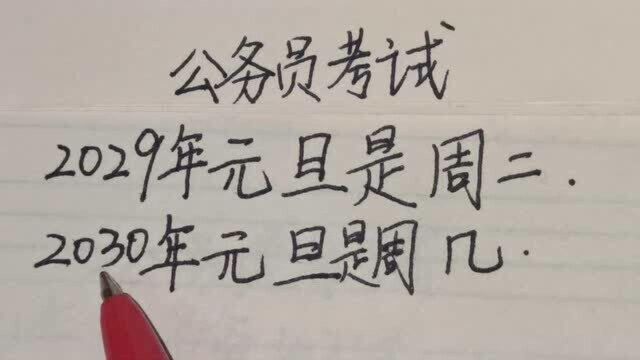 公务员考试
2029年元旦是周二.
2030年元旦是周几.